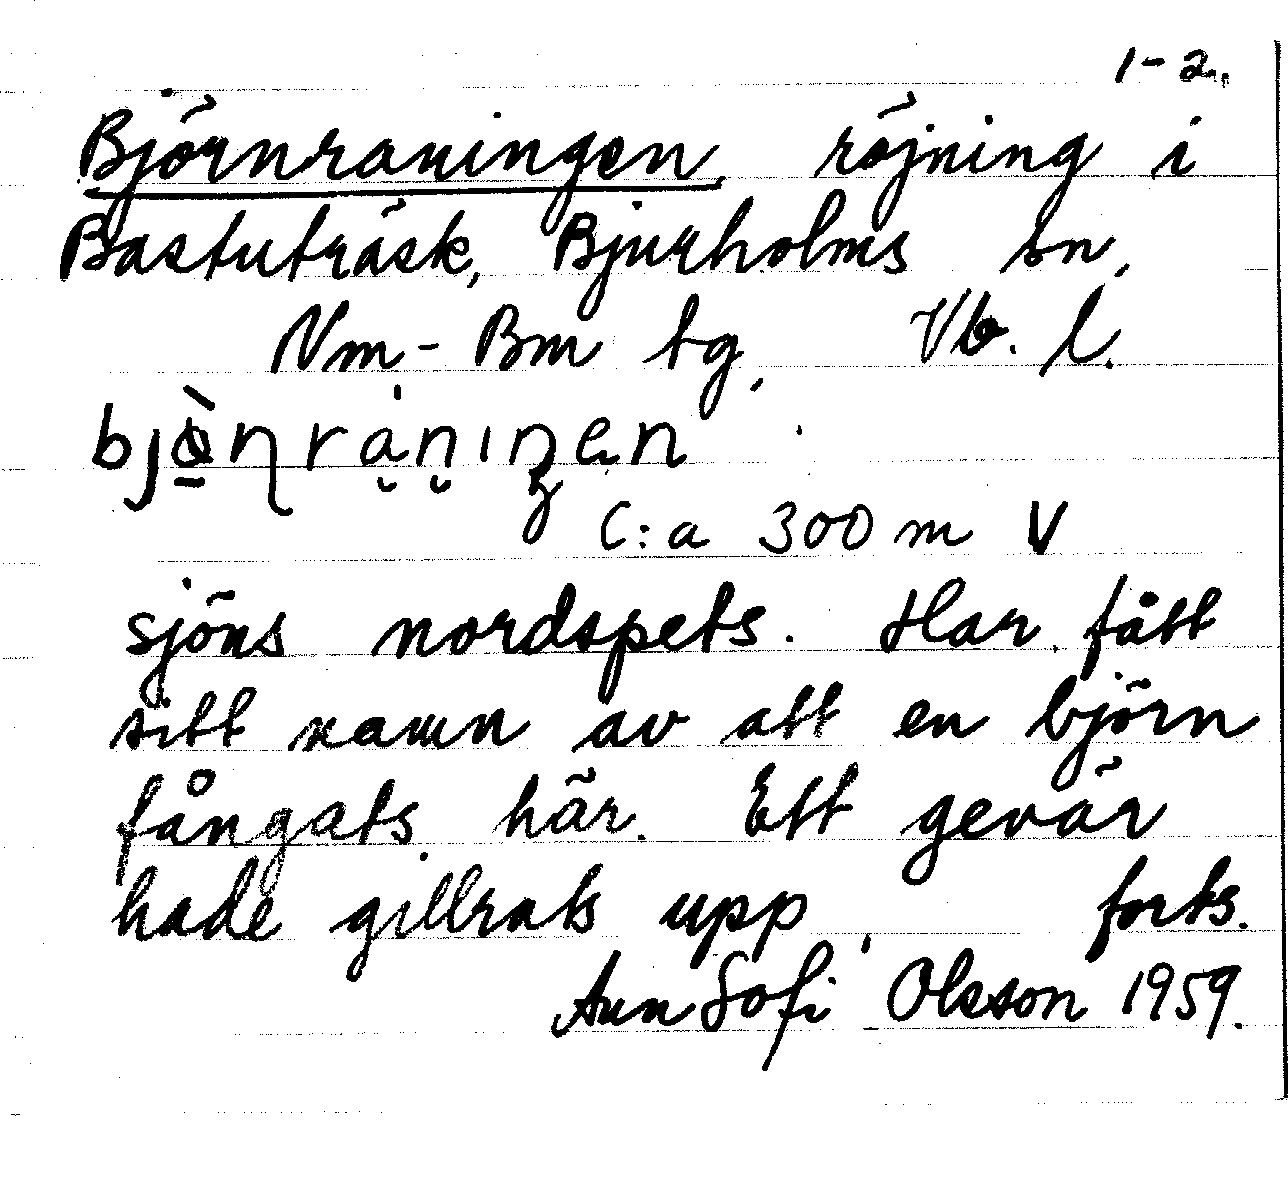 1-2.
Björnraningen, röjning i
Bastuträsk, Bjurholms sn,
Nm-Bm tg, Vb. l.
C:a 300 m V
sjöns nordspets. Har fått
sitt namn av att en björn
fångats här. Ett gevär
hade gillrats upp, forts.
Ann Sofi Olsson 1959.